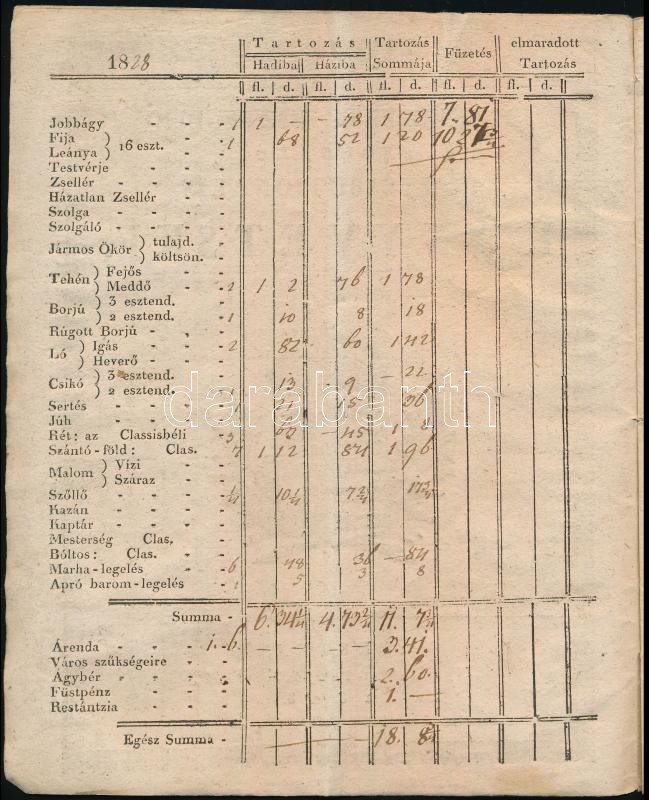 1828
Tartozás Tartozás Fűzetés elmaradott
Hadiba Háziba Sommája Tartozás
fl. d. fl. d. fl. d. fl. d. fl. d.
Jobbágy - - - 1 1 - - 78 1 78 7 81
Fija ) 16 eszt. - - 1 68 52 1 20 10
Leánya )
Testvérje - - -
Zsellér - - - -
Házatlan Zsellér - -
Szolga - - - -
Szolgáló - - - -
Jármos Ökör ) tulajd. -
) költsön. -
Tehén ) Fejős - - -
) Meddő - - 2 1 2 76 1 78
Borjú ) 3 esztend. - -
) 2 esztend. - 1 10 8 18
Rúgott Borjú - - -
Ló ) Igás - - 2 82 60 1 42
) Heverő - - -
Csikó ) 3 esztend. - -
) 2 esztend. - 1 13 - 9 - 22
Sertés - - - - 21 15 36
Júh - - - -
Rét: az Classisbéli - 3 63 - 45 1 8
Szántó-föld: Clas. - 7 1 12 84 1 96
Malom ) Vízi - -
) Száraz - -
Szőllő - - - -
Kazán - - - -
Kaptár - - - -
Mesterség Clas. -
Bóltos: Clas. - -
Marha-legelés - - 6 48 36 - 84
Apró barom-legelés - 1 5 3 8
Summa -
Árenda - - - 1. 6. - - - 3. 41.
Város szűkségeire - -
Ágybér - - - - 2. 60.
Füstpénz - - - 1. -
Restántzia - - -
Egész Summa -
darabanth